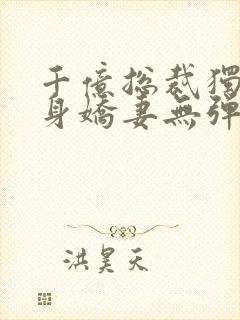 千億總裁獨
身嬌妻無彈
洪昊天